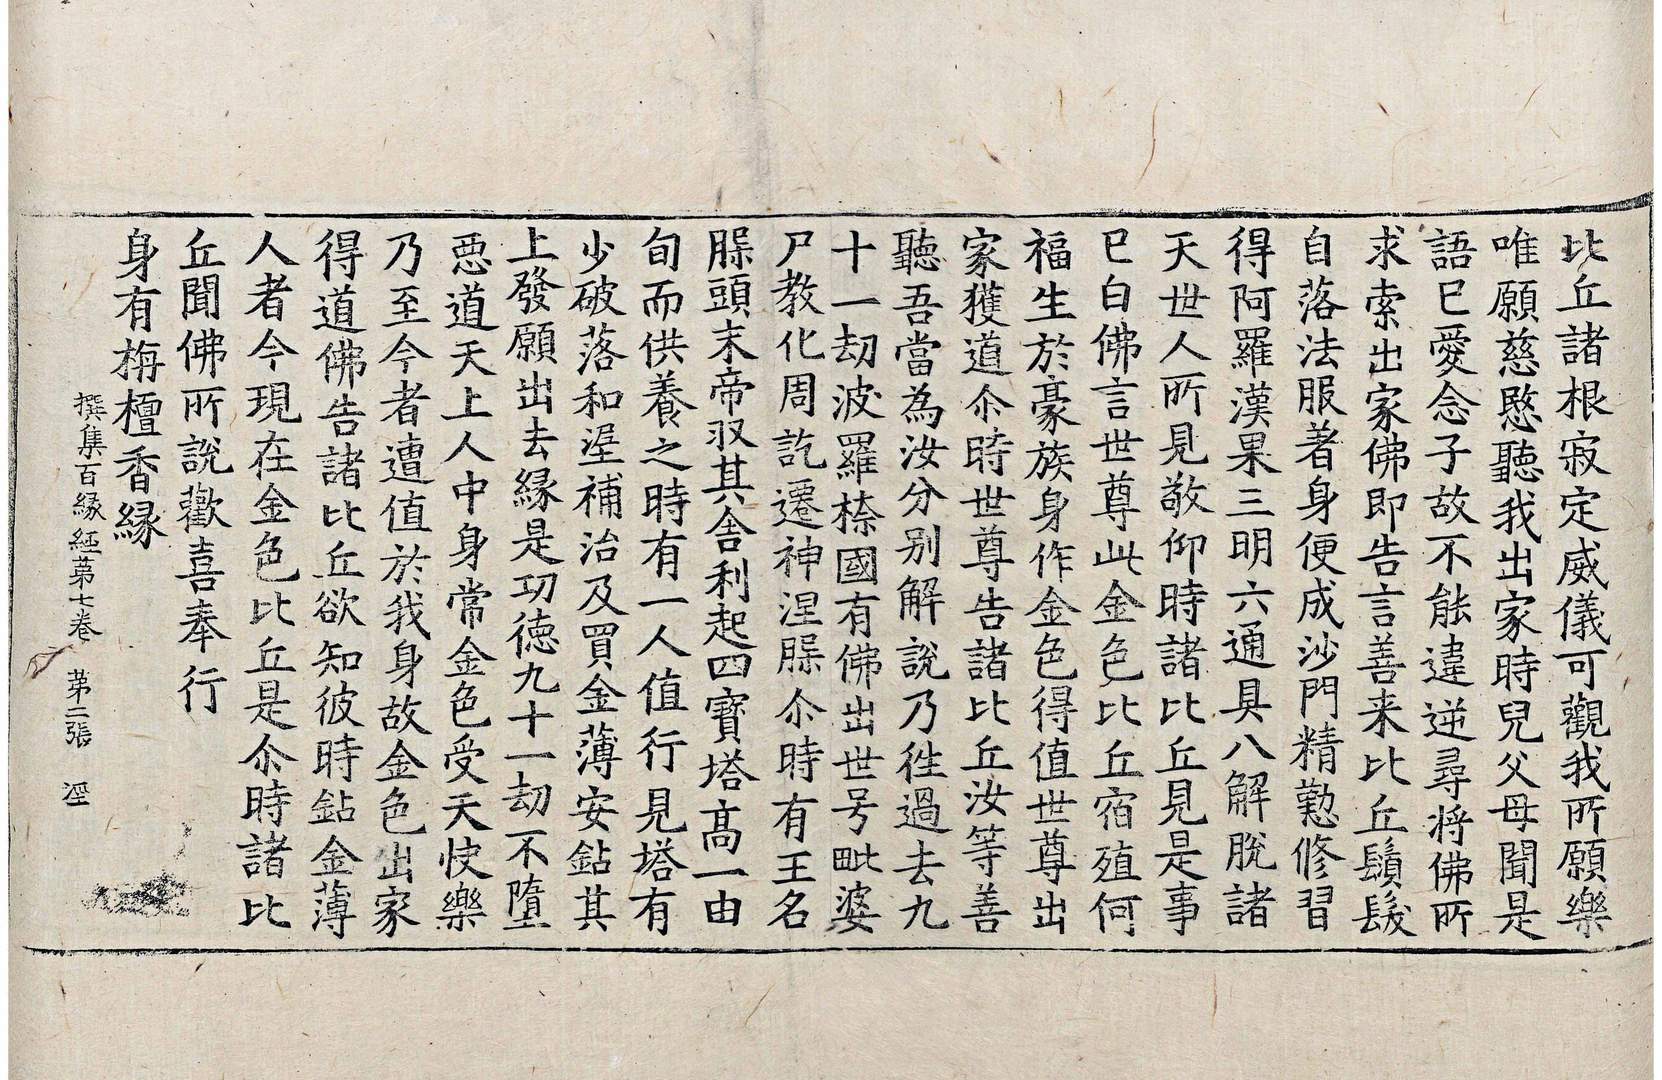 比丘諸根寂定威儀可觀我所願樂
唯願慈愍聽我出家時兒父母聞是
語已愛念子故不能違逆尋將佛所
求索出家佛即告言善来比丘鬚髮
自落法服著身便成沙門精懃修習
得阿羅漢果三明六通具八解脫諸
天世人所見敬仰時諸比丘見是事
已白佛言世尊此金色比丘宿殖何
福生於豪族身作金色得值世尊出
家獲道尒時世尊告諸比丘汝等善
聽吾當為汝分別解說乃徃過去九
十一劫波羅㮈國有佛出世号毗婆
尸教化周訖遷神涅槃尒時有王名
槃頭末帝収其舍利起四寶塔髙一由
旬而供養之時有一人值行見塔有
少破落和埿補治及買金薄安鉆其
上發願出去緣是功德九十一劫不墮
惡道天上人中身常金色受天快樂
乃至今者遭值於我身故金色出家
得道佛告諸比丘欲知彼時鉆金薄
人者今現在金色比丘是尒時諸比
丘聞佛所說歡喜奉行
身有栴檀香緣
撰集百緣經苐七卷 苐二張 𢀖